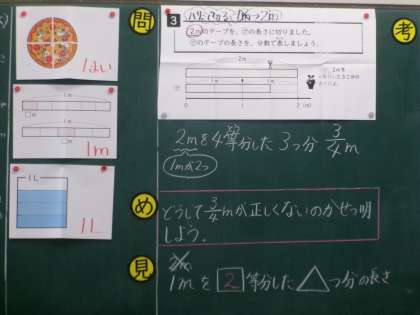 問
考
1はい
1m
□m
1m
1m
1L
1L
3
2mのテープを、㋐の長さに切りました。
㋐のテープの長さを、分数で表しましょう。
2m
㋐
0
1
2(m)
2mを4等分した3つ分 3/4m
1mが2つ
め
どうして3/4mが正しくないのかせつ明
しよう。
見
2m
1mを2等分した△つ分の長さ